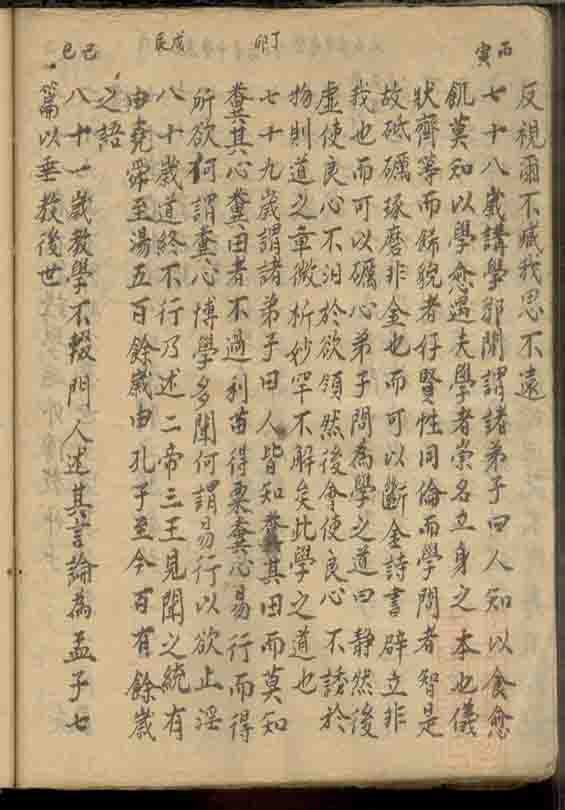 反視爾不臧我思不遠
丙寅
七十八歲講學邪閒謂諸弟子曰人知以食愈
飢莫知以學愈遇夫學者崇名立身之本也儀
狀齊等而餙貌者仔賢性同倫而學問者智是
故砥礪琢磨非金也而可以斷金詩書辟立非
我也而可以礪心弟子問為學之道曰靜然後
虛使良心不汨於欲領然後會使良心不誘於
物則道之章微析妙罕不解矣此學之道也
丁卯
七十九歲謂諸弟子曰人皆知糞其田而莫知
糞其心糞田者不過利苗得粟糞心易行而得
所欲何謂糞心博學多聞何謂易行以欲止淫
戊辰
八十歲道終不行乃述二帝三王見聞之統有
由堯舜至湯五百餘歲由孔子至今百有餘歲
之語
己巳
八十一歲教學不輟門人述其言論為孟子七
篇以垂教後世